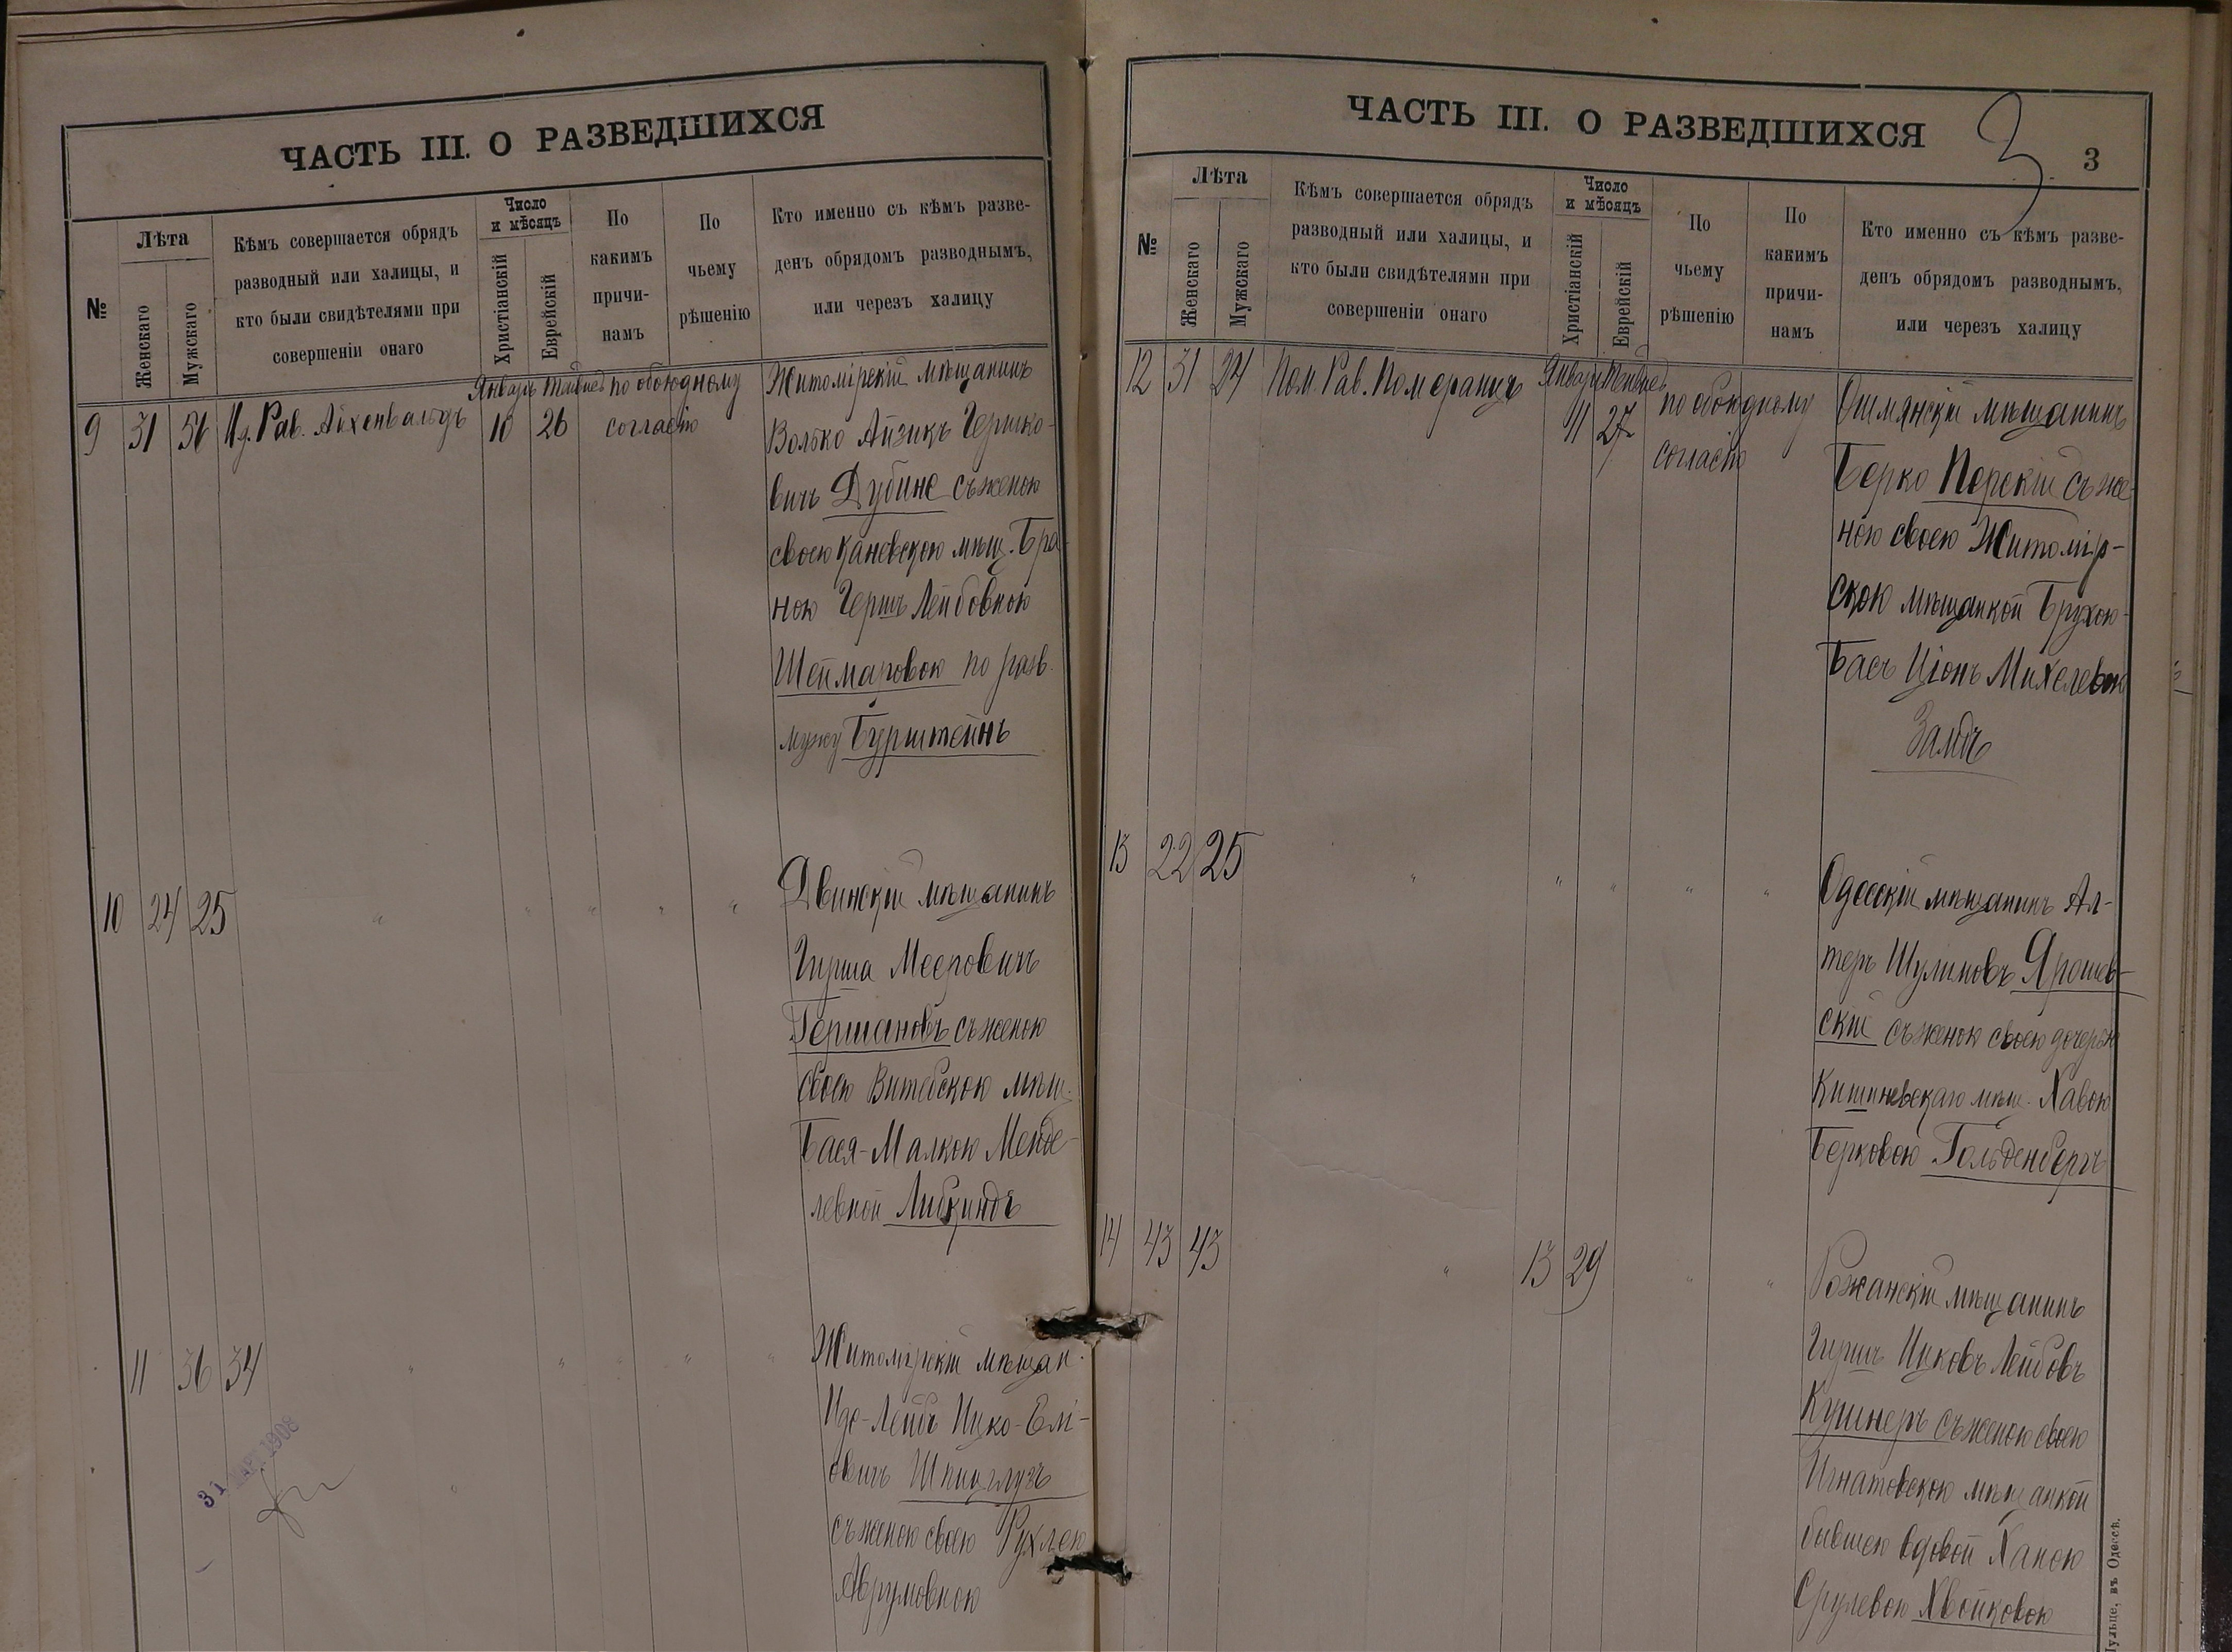 ЧАСТЬ III. О РАЗВЕДШИХСЯ
№
Лѣта
Женскаго
Мужскаго
Кѣмъ совершается обрядъ
разводный или халицы, и
кто были свидѣтелями при
совершеніи онаго
Число
и мѣсяцъ
Христіанскій
Еврейскій
По
какимъ
причи-
намъ
По
чьему
рѣшенію
Кто именно съ кѣмъ разве-
денъ обрядомъ разводнымъ,
или черезъ халицу
9 31 56 Рав. Айхенвальдъ
Январь
10 26
по обоюдному
согласію
Житомірскій мѣщанинъ
Волько Айзикъ Гершко-
вичъ Дубине съ женою
своею Каневскою мѣщ. Бра-
ною Гершъ Лейбовною
Шеймаровою по разв.
мужу Бурштейнъ
10 24 25 " " " " "
Двинскій мѣщанинъ
Гирша Мееровичъ
Гершановъ съ женою
своею Витебскою мѣщ.
Бася-Малкою Менде-
левной Либкиндъ
11 36 34 " " " " "
Житомірскій мѣщан.
Идо-Лейбъ Ицко-Елі-
овичъ Шпицглузъ
съ женою своею Рухлею
Аврумовною
31 1908
ЧАСТЬ III. О РАЗВЕДШИХСЯ
3
3
№
Лѣта
Женскаго
Мужскаго
Кѣмъ совершается обрядъ
разводный или халицы, и
кто были свидѣтелями при
совершеніи онаго
Число
и мѣсяцъ
Христіанскій
Еврейскій
По
чьему
рѣшенію
По
какимъ
причи-
намъ
Кто именно съ кѣмъ разве-
денъ обрядомъ разводнымъ,
или черезъ халицу
12 31 24 Пом. Рав. Померанцъ
Январь
11 27
по обоюдному
согласію
Ошмянскій мѣщанинъ
Берко Перскій съ же-
ною своею Житомір-
скою мѣщанкой Брухою-
Басъ Ціонъ Михелевою
Замдъ
13 22 25 " " " " "
Одесскій мѣщанинъ Ал-
теръ Шулимовъ Ярошев-
скій съ женою своею дочерью
Кишиневскаго мѣщ. Хавою
Берковою Гольденбергъ
14 43 43 " 13 29 " "
Рожанскій мѣщанинъ
Гиршъ Ицковъ Лейбовъ
Кушнеръ съ женою своею
Игнатовскою мѣщанкой
бывшею вдовой Ханою
Срулевою Хвойковою
Шульце, въ Одессѣ.